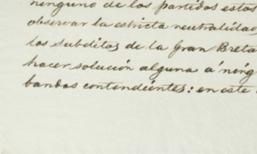 ninguno de los partidos estos
observar la estricta neutralidad
los subditos de la Gran Breta
hacer solución alguna á ning
bandos contendientes: en este